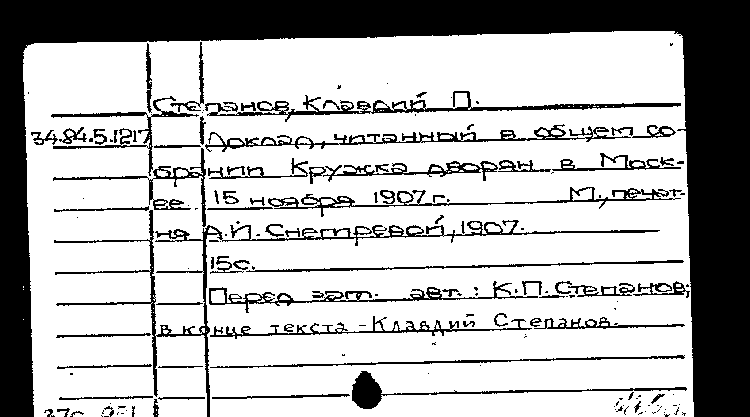 Степанов, Клавдий П.
34.84.5.1217 Доклад, читанный в общем со-
брании Кружка дворян в Моск-
ве 15 ноября 1907 г. М., печат-
ня А.И. Снегиревой, 1907.
15 с.
Перед загл. авт.: К.П. Степанов;
в конце текста - Клавдий Степанов.